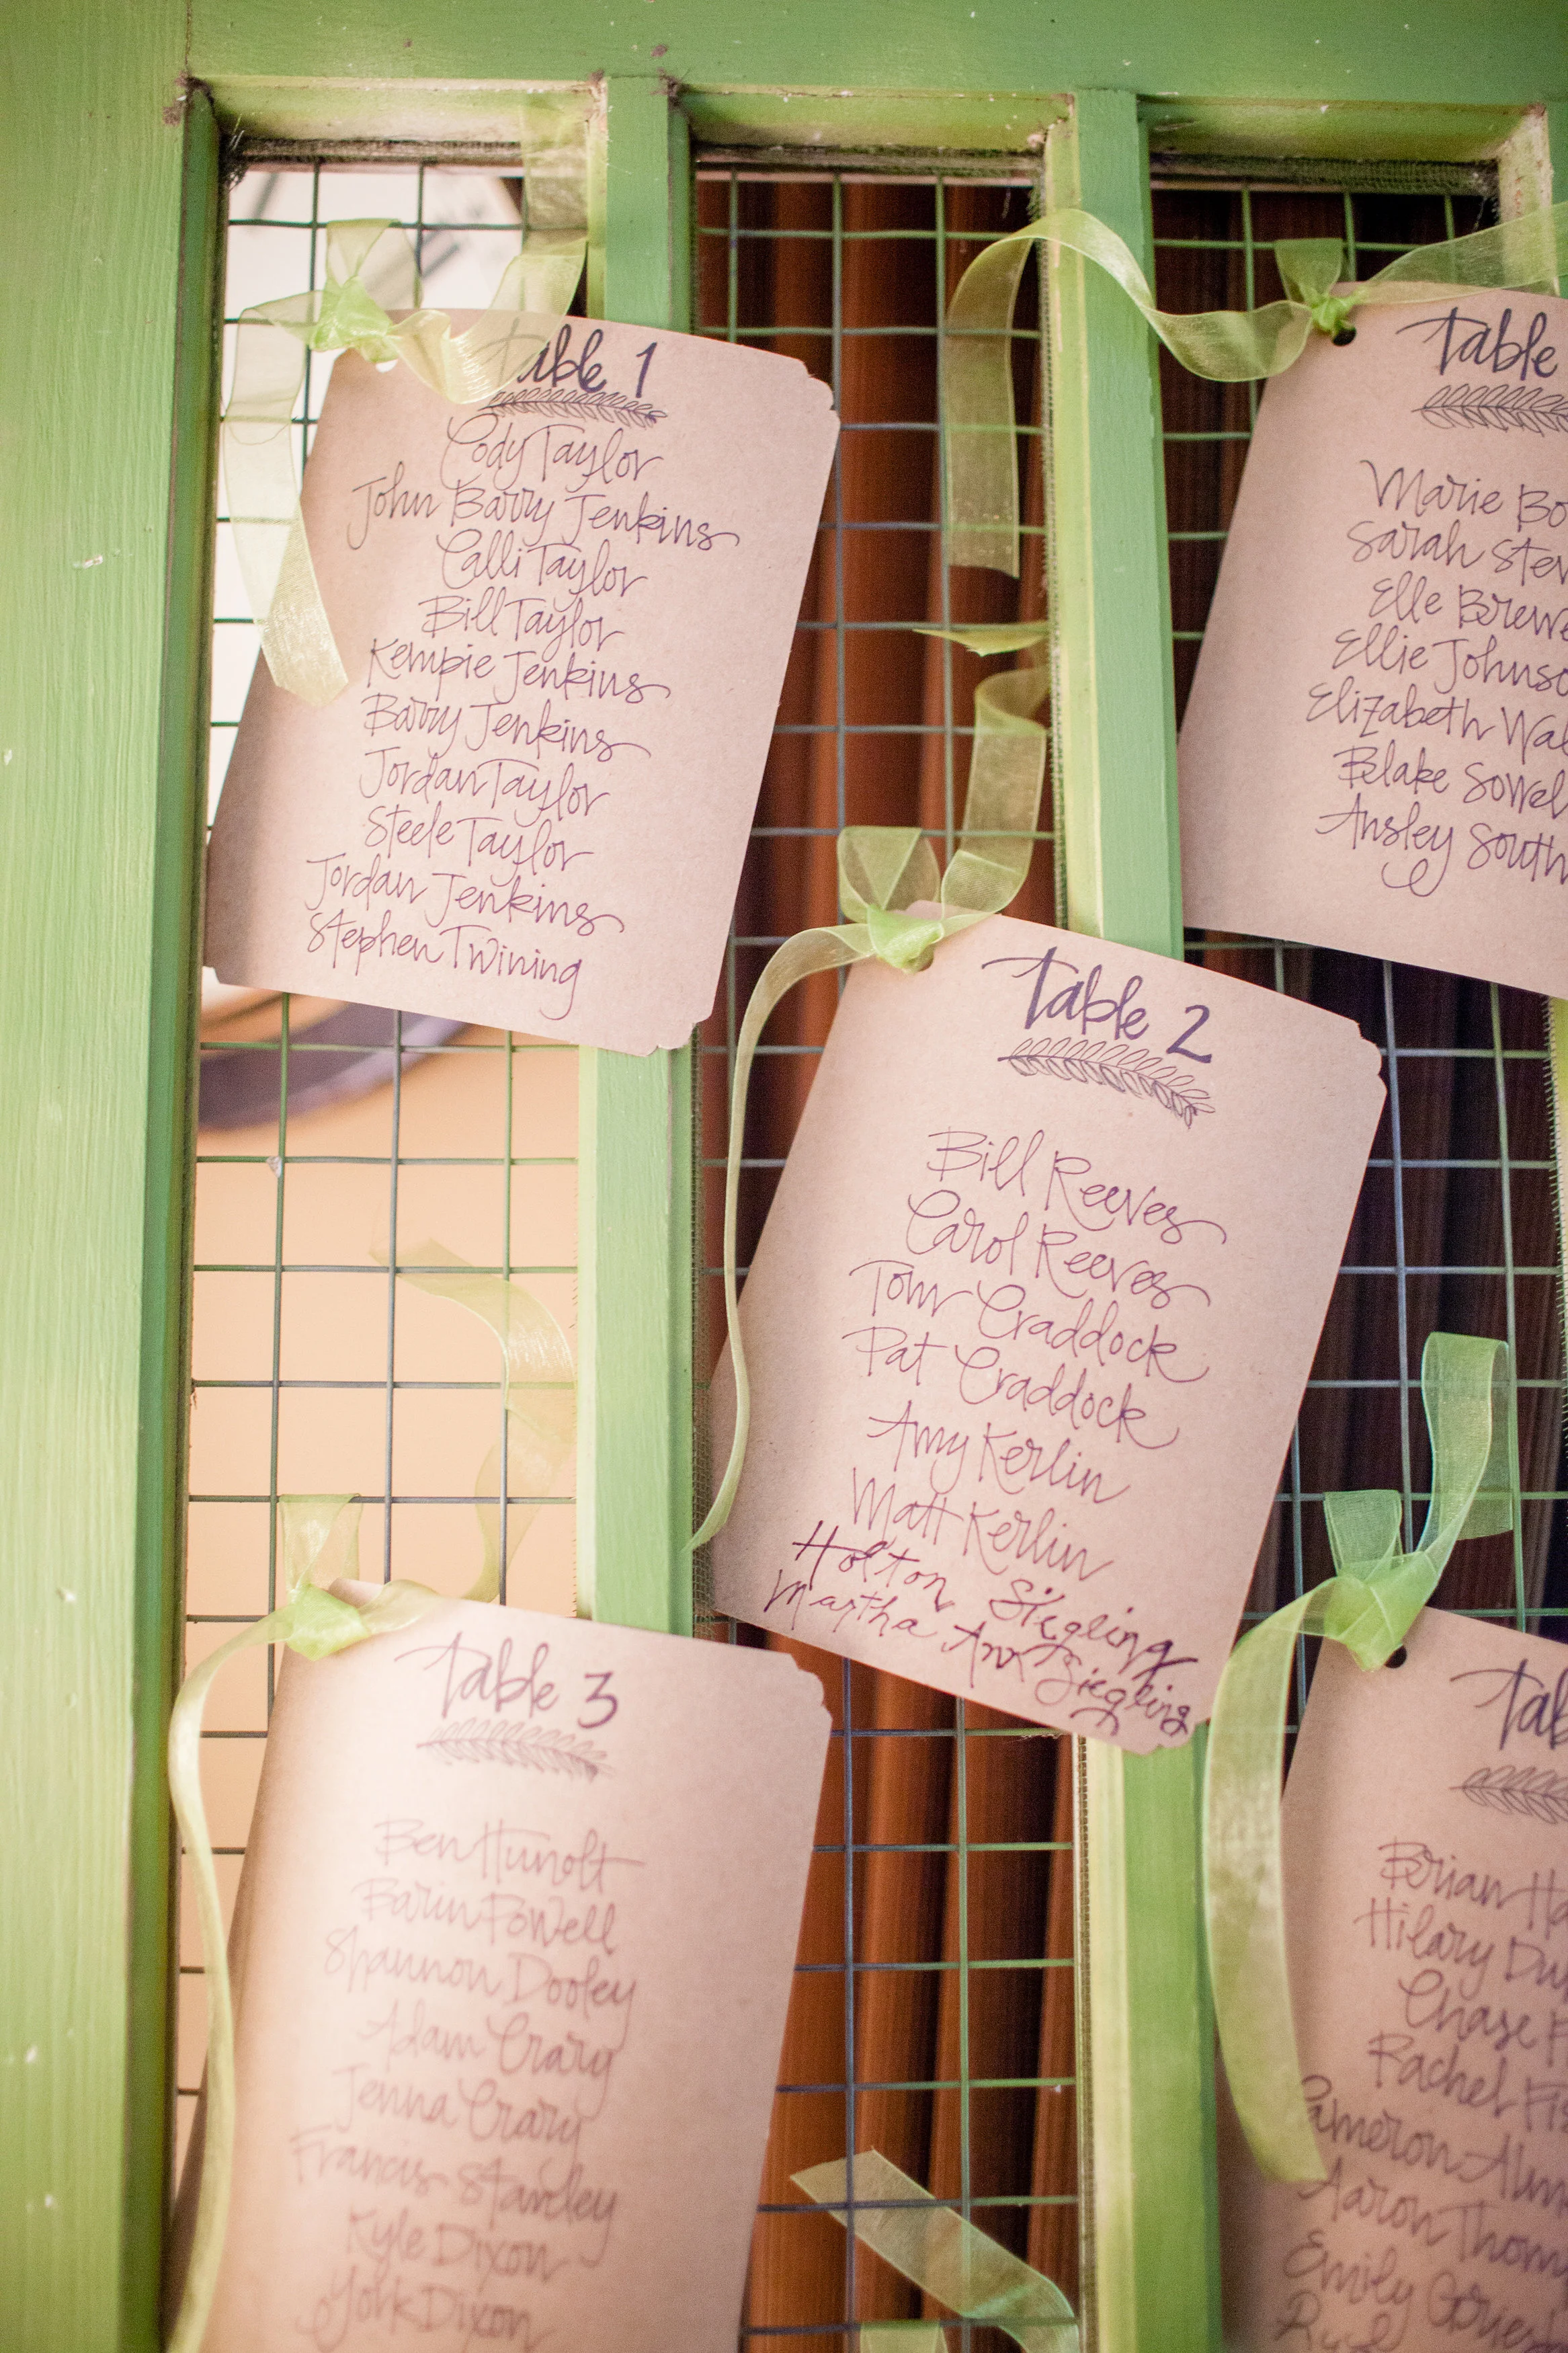 Table 1
Cody Taylor
John Barry Jenkins
Calli Taylor
Bill Taylor
Kempie Jenkins
Barry Jenkins
Jordan Taylor
Steele Taylor
Jordan Jenkins
Stephen Twining
Table
Marie
Sarah
Elle
Ellie
Elizabeth
Blake
Ansley
Table 2
Bill Reeves
Carol Reeves
Tom Craddock
Pat Craddock
Amy Kerlin
Matt Kerlin
Holton Siegling
Martha Ann Siegling
Table 3
Ben Hunolt
Powell
Shannon Dooley
Adam Crary
Jenna Crary
Francis Stanley
Kyle Dixon
York Dixon
Brian
Hilary
Chase
Rachel
Cameron
Aaron
Emily